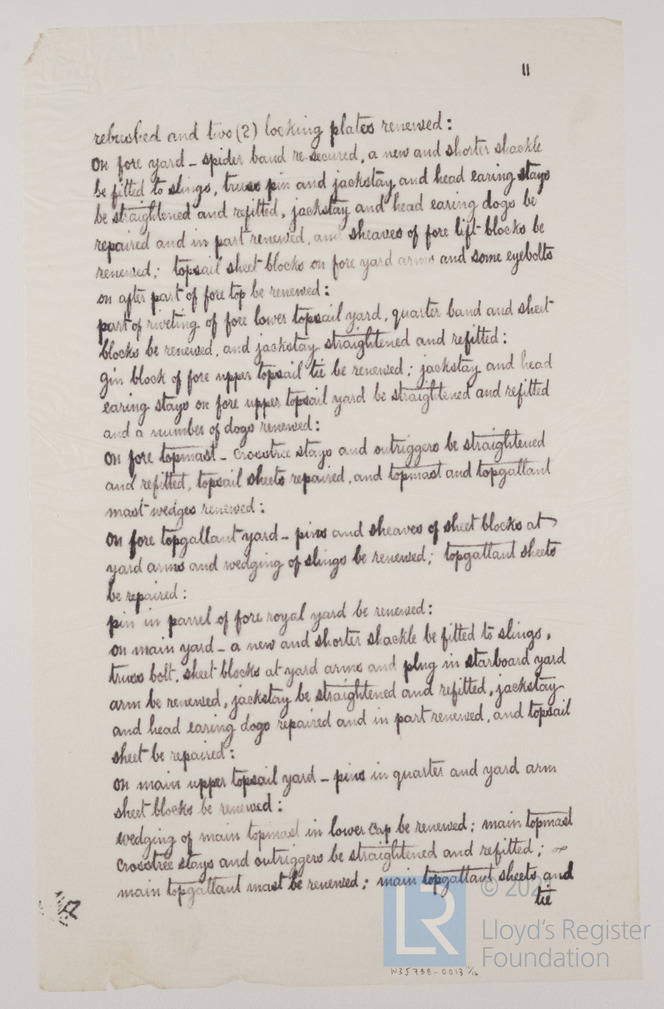 11
rebushed and two (2) locking plates renewed:
on fore yard - spider band re-secured, a new and shorter shackle
be fitted to slings, truss pin and jackstay and head earing stays
be straightened and refitted, jackstay and head earing dogs be
repaired and in part renewed, and sheaves of fore lift blocks be
renewed; topsail sheet blocks on fore yard arms and some eyebolts
on after part of fore top be renewed:
part of riveting of fore lower topsail yard, quarter band and sheet
blocks be renewed, and jackstay straightened and refitted:
gin block of fore upper topsail tie be renewed; jackstay and head
earing stays on fore upper topsail yard be straightened and refitted
and a number of dogs renewed:
on fore topmast - crosstree stays and outriggers be straightened
and refitted, topsail sheets repaired, and topmast and topgallant
mast wedges renewed:
on fore topgallant yard - pins and sheaves of sheet blocks at
yard arms and wedging of slings be renewed; topgallant sheets
be repaired:
pin in parrel of fore royal yard be renewed:
on main yard - a new and shorter shackle be fitted to slings,
truss bolt, sheet blocks at yard arms and plug in starboard yard
arm be renewed, jackstay be straightened and refitted, jackstay
and head earing dogs repaired and in part renewed, and topsail
sheet be repaired:
on main upper topsail yard - pins in quarter and yard arm
sheet blocks be renewed:
wedging of main topmast in lower cap be renewed; main topmast
crosstree stays and outriggers be straightened and refitted;
main topgallant mast be renewed; main topgallant sheets and
tie
© 202
LR
Lloyd's Register
Foundation
W35788-0013